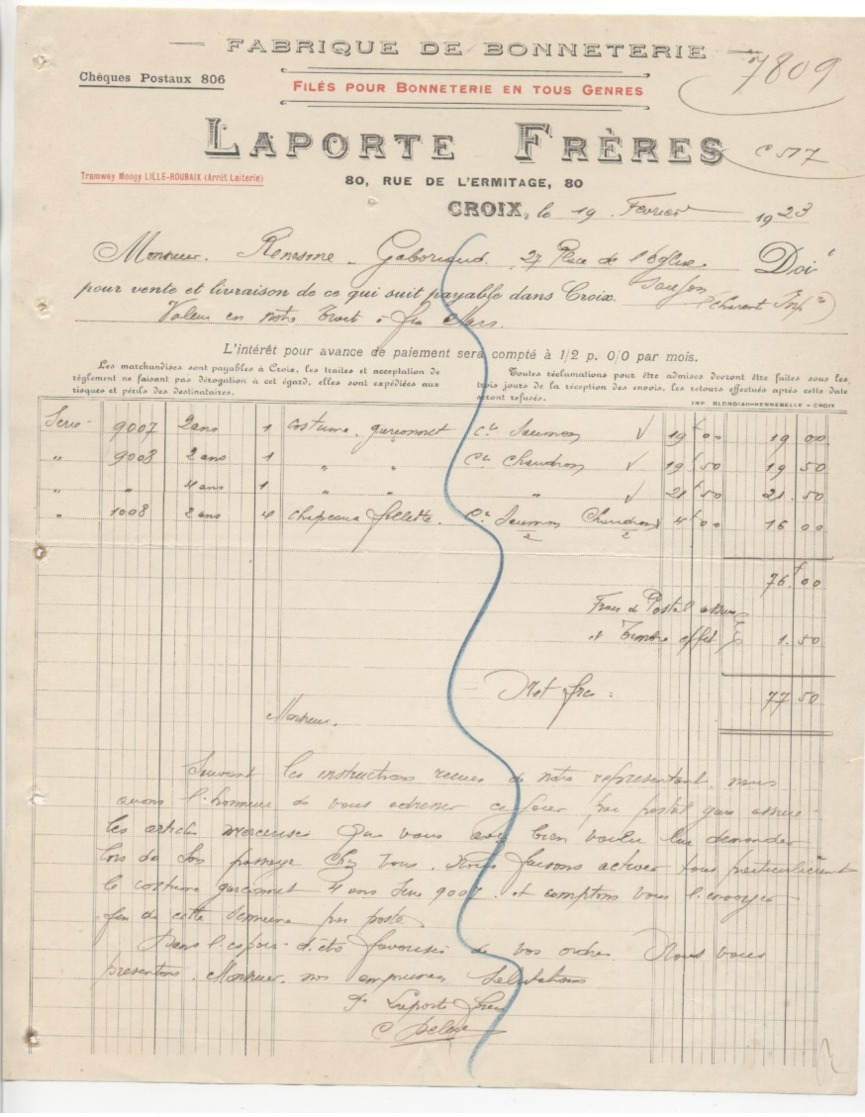 FABRIQUE DE BONNETERIE
7809
Chèques Postaux 806
FILÉS POUR BONNETERIE EN TOUS GENRES
LAPORTE FRÈRES
C 517
Tramway Mongy LILLE-ROUBAIX (Arrêt Laiterie)
80, RUE DE L'ERMITAGE, 80
CROIX, le 19 Fevrier 1923
Monsieur. Renesme - Gaboriaud. 27 Place de l'Eglise. Doit
Saujon
pour vente et livraison de ce qui suit payable dans Croix. (Charent Infre)
Valeur en notre Trait à fin Mars.
L'intérêt pour avance de paiement sera compté à 1/2 p. 0/0 par mois.
Les marchandises sont payables à Croix, les traites et acceptation de
règlement ne faisant pas dérogation à cet égard, elles sont expédiées aux
risques et périls des destinataires.
Toutes réclamations pour être admises devront être faites sous les
trois jours de la réception des envois, les retours effectués après cette date
seront refusés.
IMP. BLONDIAU-HENNEBELLE - CROIX
Serie 9007 2 ans 1 costume garçonnet Cis Saumon √ 19f00 19 00
" 9008 2 ans 1 " " Cis Chaudron √ 19 50 19 50
" " 4 ans 1 " " " √ 21 50 21 50
" 1008 2 ans 4 chapeaux fillette. Cis Saumon Chaudron 4f00 16 00
2 2
76f00
Frais de Postal assuré
et Timbre effet 1.50
Net frcs : 77 50
Monsieur.
Suivant les instructions recues de notre representant, nous
avons l'honneur de vous adresser ce jour, par postal gare assuré
les articles Que vous avez bien voulu lui demander
lors de son passage chez vous. Nous faisons activer tous particulièrement
le costume garçonnet 4 ans Serie 9007. et comptons vous l'envoyer
fin de cette semaine par poste
Dans l'espoir d'être favorisés de vos ordres. Nous vous
presentons. Monsieur. nos empressées Salutations
Laporte frères